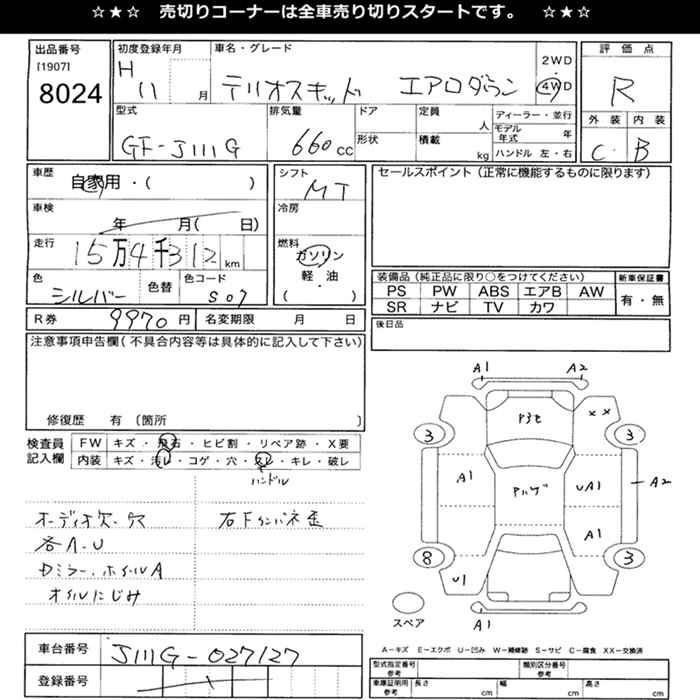 ☆★☆ 売切りコーナーは全車売り切りスタートです。 ☆★☆
出品番号
[1907]
8024
初度登録年月
H 11 月
車名・グレード
テリオスキッド エアロダウン
2WD
4WD
評価点
R
外装 内装
C B
型式
GF-J111G
排気量
660cc
ドア
形状
定員
人
積載
kg
ディーラー・並行
モデル年式 年
ハンドル 左・右
車歴
自家用・( )
車検
年 月( 日)
走行
15万4千312km
色
シルバー
色替
色コード
S07
シフト
MT
冷房
燃料
ガソリン
軽・油
( )
セールスポイント(正常に機能するものに限ります)
装備品(純正品に限り○をつけてください)
PS PW ABS エアB AW
SR ナビ TV カワ
新車保証書
有・無
後日品
R券 9970円 名変期限 月 日
注意事項申告欄(不具合内容等は具体的に記入して下さい)
修復歴 有 〔箇所 〕
検査員記入欄
FW キズ・飛石・ヒビ割・リペア跡・X要
内装 キズ・汚レ・コゲ・穴・スレ・キレ・破レ
ハンドル
オーディオ欠.穴
各A.U
Dミラー.ホイールA
オイルにじみ
A1 A2
3 3
A1 UA1 A2
A1
8 3
U1
A1
スペア
A-キズ E-エクボ U-凹み W-補修跡 S-サビ C-腐食 XX-交換済
車台番号
J111G-027127
登録番号
型式指定番号 参考
類別区分番号 参考
車庫証明用 参考
長さ cm 幅 cm 高さ cm